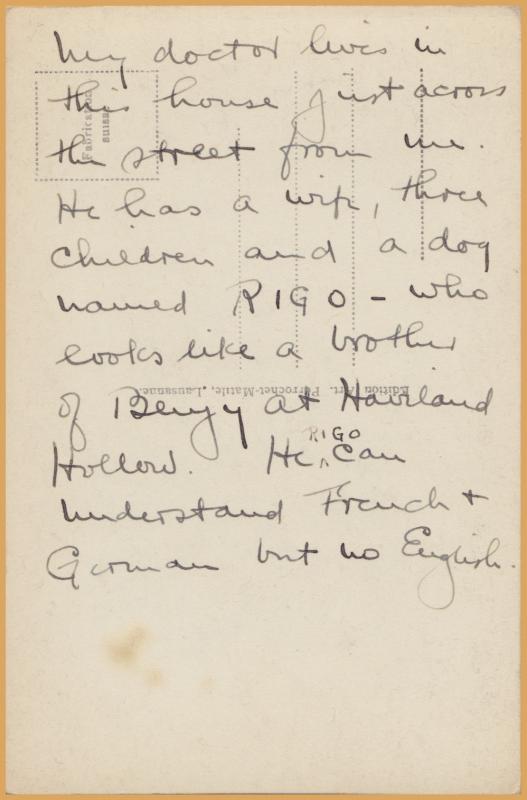 My doctor lives in
this house just across
the street from me.
He has a wife, three
children and a dog
named RIGO - who
looks like a brother
of Benjy at Haviland
Hollow. He ^RIGO can
understand French +
German but no English.
Fabrication
suisse
Edition Art. Perrochet-Matile, Lausanne.